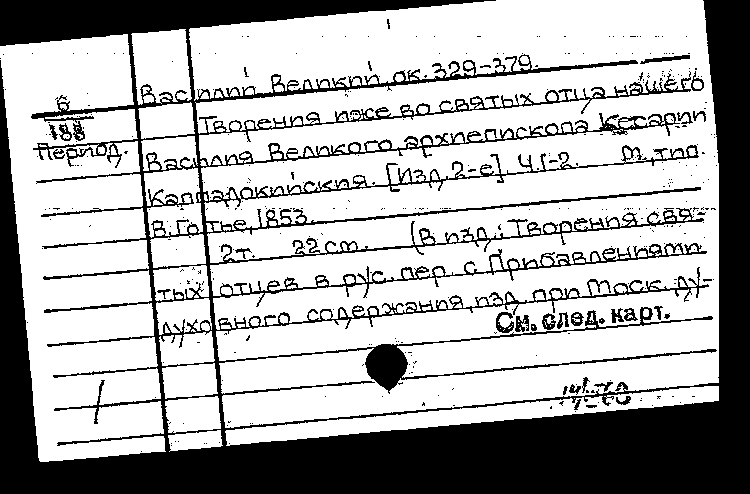 Василий Великий, ок. 329-379.
6
188
Период.
Творения иже во святых отца нашего
Василия Великого, архиепископа Кесарии
Каппадокийския. [Изд. 2-е]. Ч. 1-2. М., тип.
В. Готье, 1853.
2 т. 22 см. (В изд.: Творения свя-
тых отцев в рус. пер. с Прибавлениями
духовного содержания, изд. при Моск. ду-
См. след. карт.